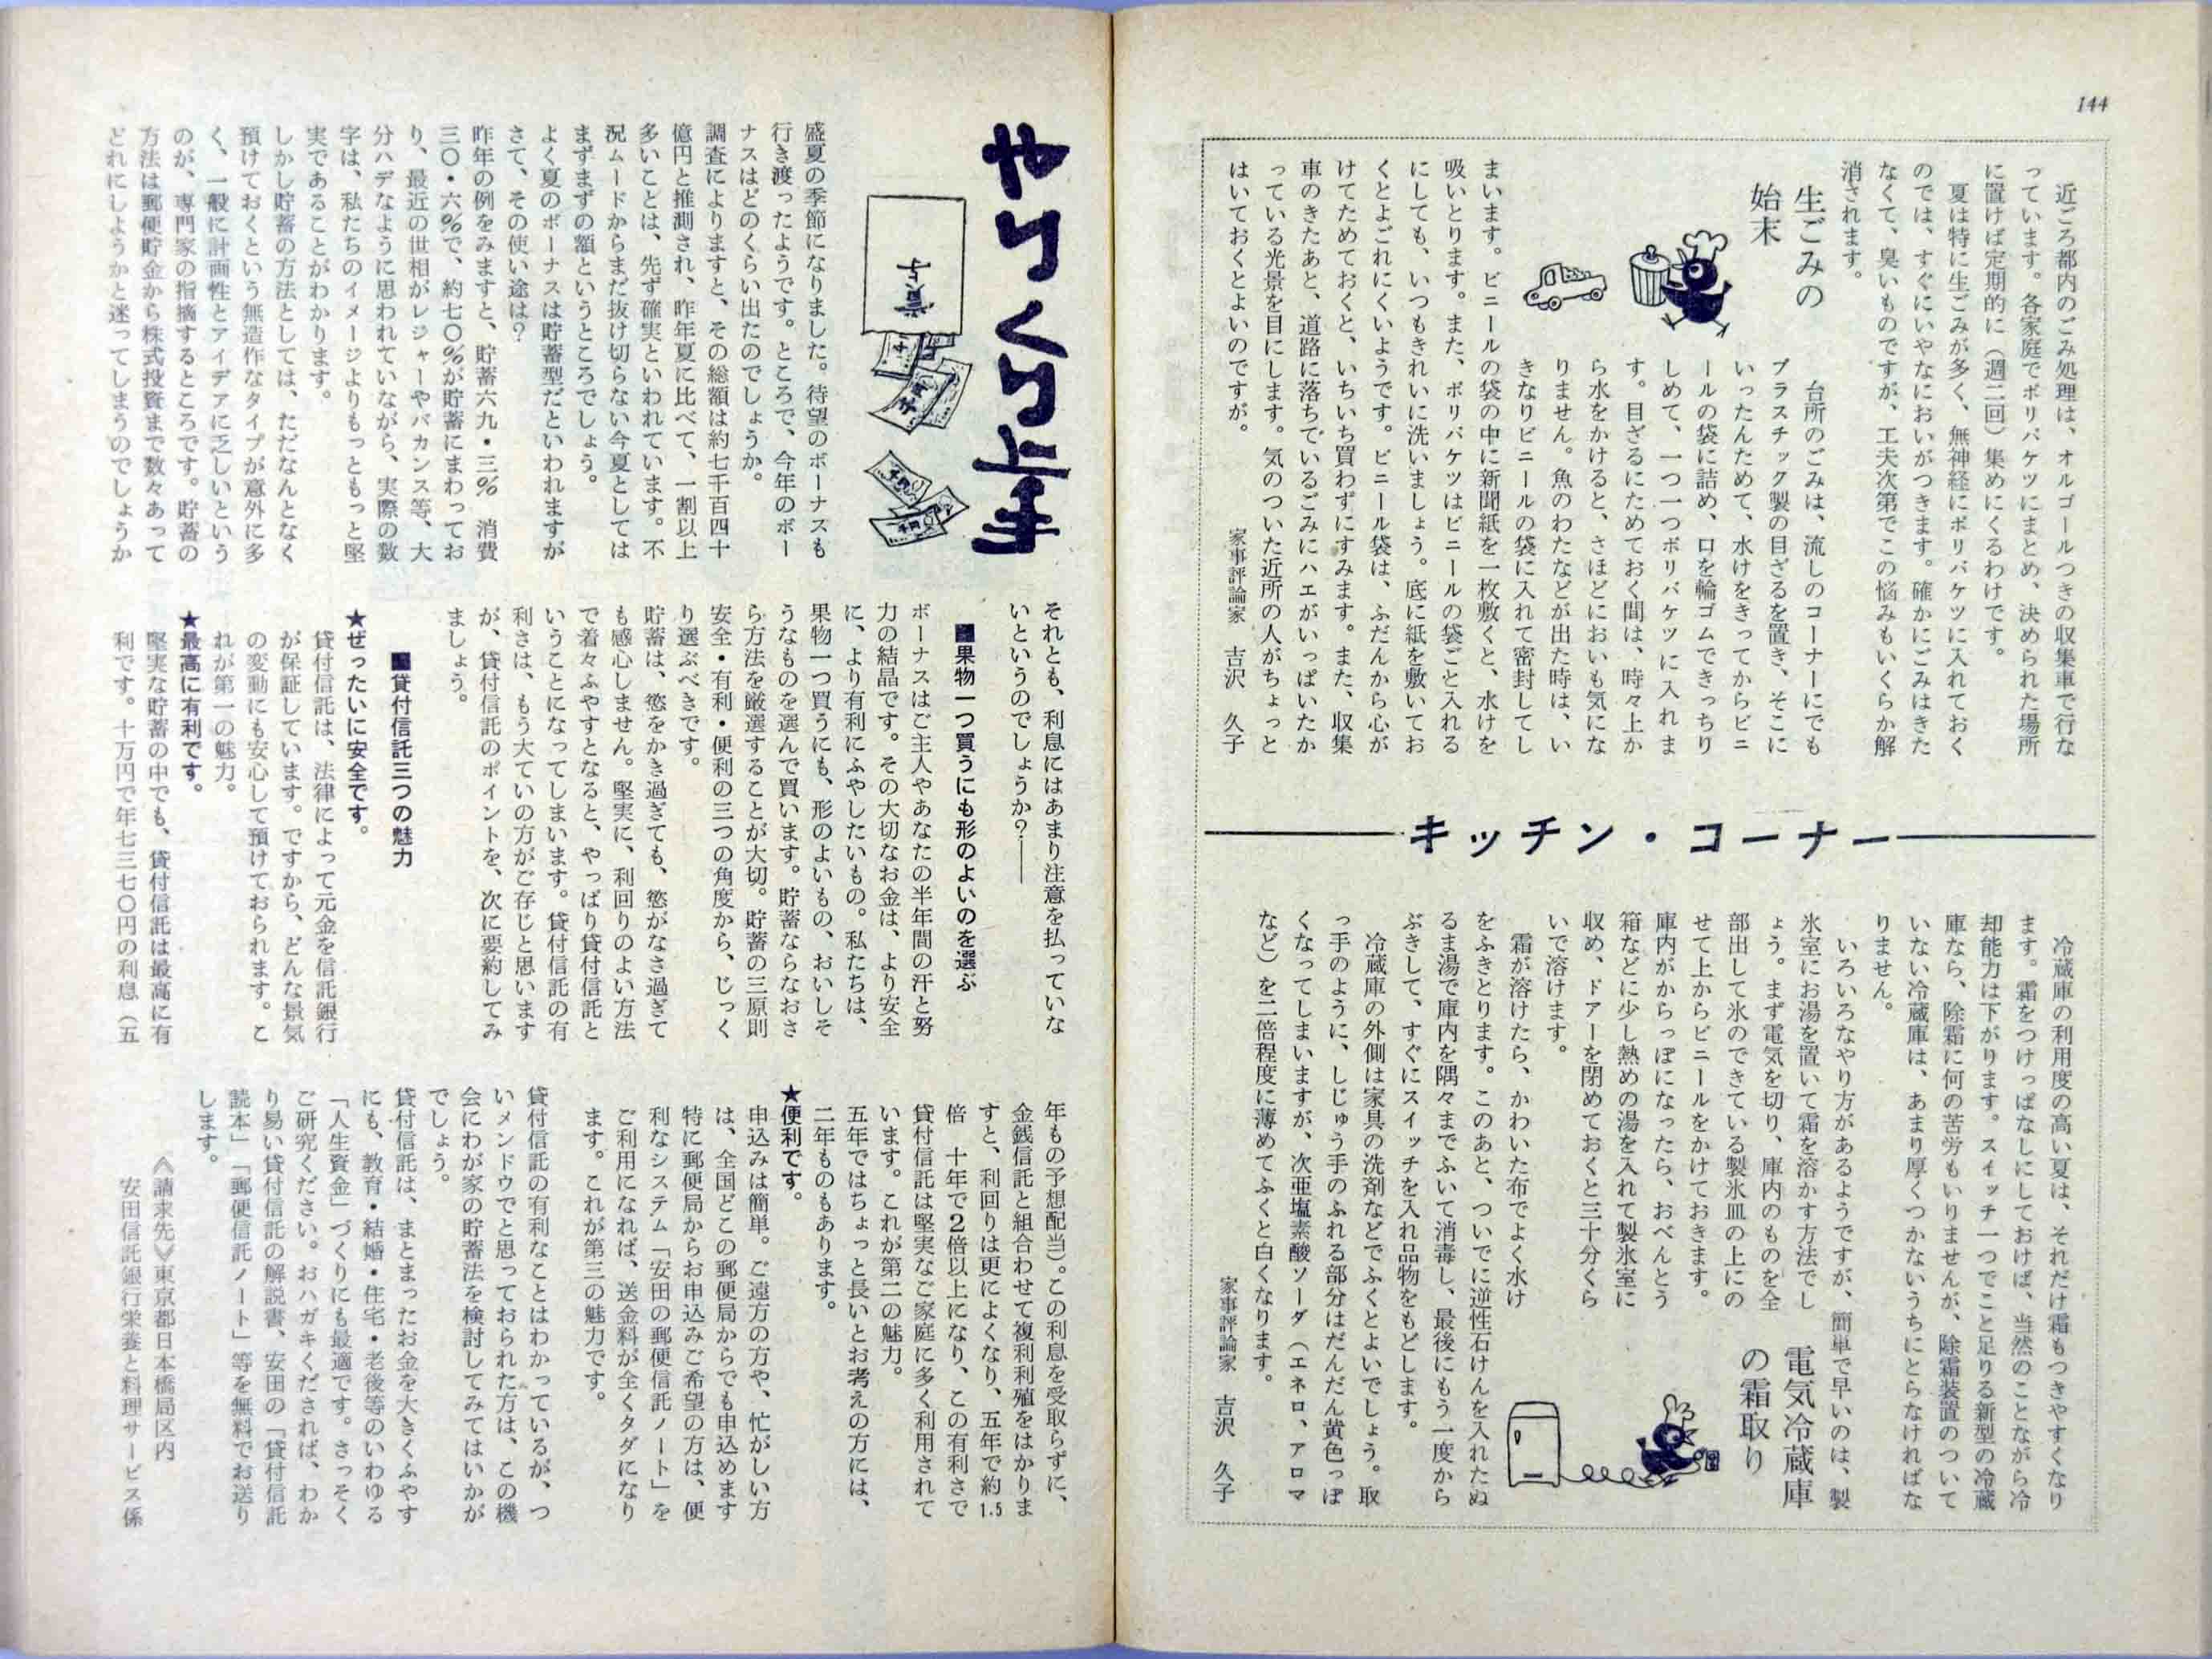 144
生ごみの
始末
近ごろ都内のごみ処理は、オルゴールつきの収集車で行な
っています。各家庭でポリバケツにまとめ、決められた場所
に置けば定期的に（週二回）集めにくるわけです。
夏は特に生ごみが多く、無神経にポリバケツに入れておく
のでは、すぐにいやなにおいがつきます。確かにごみはきた
なくて、臭いものですが、工夫次第でこの悩みもいくらか解
消されます。
台所のごみは、流しのコーナーにでも
プラスチック製の目ざるを置き、そこに
いったんためて、水けをきってからビニ
ールの袋に詰め、口を輪ゴムできっちり
しめて、一つ一つポリバケツに入れま
す。目ざるにためておく間は、時々上か
ら水をかけると、さほどにおいも気にな
りません。魚のわたなどが出た時は、い
きなりビニールの袋に入れて密封してし
まいます。ビニールの袋の中に新聞紙を一枚敷くと、水けを
吸いとります。また、ポリバケツはビニールの袋ごと入れる
にしても、いつもきれいに洗いましょう。底に紙を敷いてお
くとよごれにくいようです。ビニール袋は、ふだんから心が
けてためておくと、いちいち買わずにすみます。また、収集
車のきたあと、道路に落ちているごみにハエがいっぱいたか
っている光景を目にします。気のついた近所の人がちょっと
はいておくとよいのですが。
家事評論家　吉沢　久子
キッチン・コーナー
電気冷蔵庫
の霜取り
冷蔵庫の利用度の高い夏は、それだけ霜もつきやすくなり
ます。霜をつけっぱなしにしておけば、当然のことながら冷
却能力は下がります。スイッチ一つでこと足りる新型の冷蔵
庫なら、除霜に何の苦労もいりませんが、除霜装置のついて
いない冷蔵庫は、あまり厚くつかないうちにとらなければな
りません。
いろいろなやり方があるようですが、簡単で早いのは、製
氷室にお湯を置いて霜を溶かす方法でし
ょう。まず電気を切り、庫内のものを全
部出して氷のできている製氷皿の上にの
せて上からビニールをかけておきます。
庫内がからっぽになったら、おべんとう
箱などに少し熱めの湯を入れて製氷室に
収め、ドアーを閉めておくと三十分くら
いで溶けます。
霜が溶けたら、かわいた布でよく水け
をふきとります。このあと、ついでに逆性石けんを入れたぬ
るま湯で庫内を隅々までふいて消毒し、最後にもう一度から
ぶきして、すぐにスイッチを入れ品物をもどします。
冷蔵庫の外側は家具の洗剤などでふくとよいでしょう。取
っ手のように、しじゅう手のふれる部分はだんだん黄色っぽ
くなってしまいますが、次亜塩素酸ソーダ（エネロ、アロマ
など）を二倍程度に薄めてふくと白くなります。
家事評論家　吉沢　久子
やりくり上手
賞与
盛夏の季節になりました。待望のボーナスも
行き渡ったようです。ところで、今年のボー
ナスはどのくらい出たのでしょうか。
調査によりますと、その総額は約七千百四十
億円と推測され、昨年夏に比べて、一割以上
多いことは、先ず確実といわれています。不
況ムードからまだ抜け切らない今夏としては
まずまずの額というところでしょう。
よく夏のボーナスは貯蓄型だといわれますが
さて、その使い途は？
昨年の例をみますと、貯蓄六九・三％　消費
三〇・六％で、約七〇％が貯蓄にまわってお
り、最近の世相がレジャーやバカンス等、大
分ハデなように思われていながら、実際の数
字は、私たちのイメージよりもっともっと堅
実であることがわかります。
しかし貯蓄の方法としては、ただなんとなく
預けておくという無造作なタイプが意外に多
く、一般に計画性とアイデアに乏しいという
のが、専門家の指摘するところです。貯蓄の
方法は郵便貯金から株式投資まで数々あって
どれにしようかと迷ってしまうのでしょうか
それとも、利息にはあまり注意を払っていな
いというのでしょうか？――
■果物一つ買うにも形のよいのを選ぶ
ボーナスはご主人やあなたの半年間の汗と努
力の結晶です。その大切なお金は、より安全
に、より有利にふやしたいもの。私たちは、
果物一つ買うにも、形のよいもの、おいしそ
うなものを選んで買います。貯蓄ならなおさ
ら方法を厳選することが大切。貯蓄の三原則
安全・有利・便利の三つの角度から、じっく
り選ぶべきです。
貯蓄は、慾をかき過ぎても、慾がなさ過ぎて
も感心しません。堅実に、利回りのよい方法
で着々ふやすとなると、やっぱり貸付信託と
いうことになってしまいます。貸付信託の有
利さは、もう大ていの方がご存じと思います
が、貸付信託のポイントを、次に要約してみ
ましょう。
■貸付信託三つの魅力
★ぜったいに安全です。
貸付信託は、法律によって元金を信託銀行
が保証しています。ですから、どんな景気
の変動にも安心して預けておられます。こ
れが第一の魅力。
★最高に有利です。
堅実な貯蓄の中でも、貸付信託は最高に有
利です。十万円で年七三七〇円の利息（五
年もの予想配当）。この利息を受取らずに、
金銭信託と組合わせて複利利殖をはかりま
すと、利回りは更によくなり、五年で約1.5
倍　十年で2倍以上になり、この有利さで
貸付信託は堅実なご家庭に多く利用されて
います。これが第二の魅力。
五年ではちょっと長いとお考えの方には、
二年ものもあります。
★便利です。
申込みは簡単。ご遠方の方や、忙がしい方
は、全国どこの郵便局からでも申込めます
特に郵便局からお申込みご希望の方は、便
利なシステム「安田の郵便信託ノート」を
ご利用になれば、送金料が全くタダになり
ます。これが第三の魅力です。
貸付信託の有利なことはわかっているが、つ
いメンドウでと思っておられた方は、この機
会にわが家の貯蓄法を検討してみてはいかが
でしょう。
貸付信託は、まとまったお金を大きくふやす
にも、教育・結婚・住宅・老後等のいわゆる
「人生資金」づくりにも最適です。さっそく
ご研究ください。おハガキくだされば、わか
り易い貸付信託の解説書、安田の「貸付信託
読本」「郵便信託ノート」等を無料でお送り
します。
《請求先》東京都日本橋局区内
安田信託銀行栄養と料理サービス係